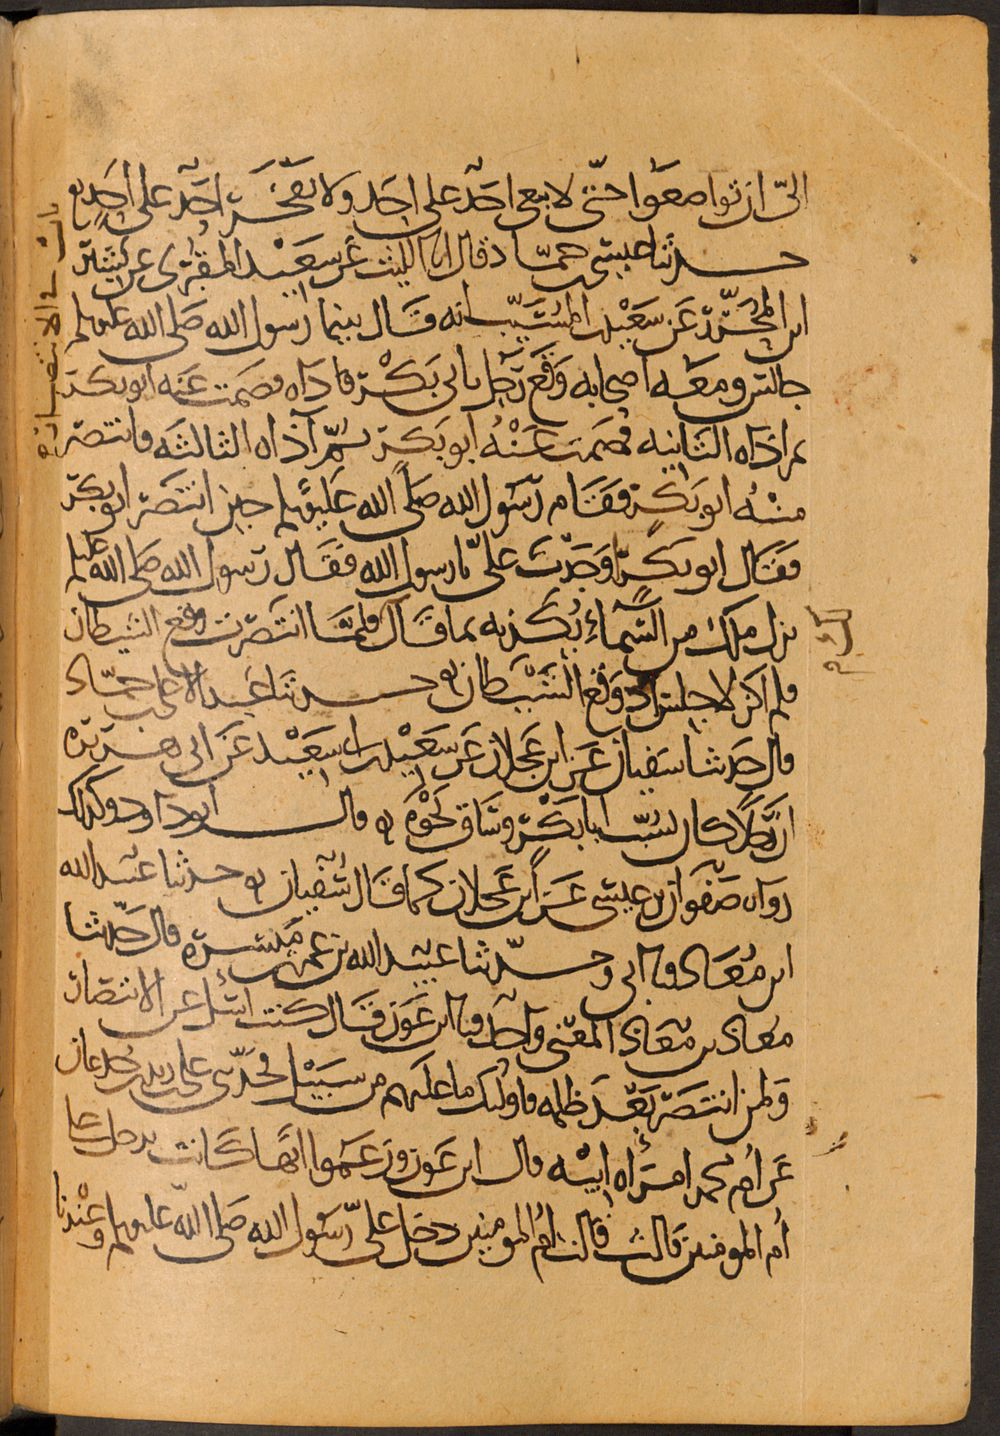 الىّ ان تواضعوا حتّى لا يبغى احدٌ على احد ولا يفخر احدٌ على احدٍ
باب في الانتصار
حدثنا عيسى بن حمّاد قال انا الليث عن سعيد المقبرى عن بشير
ابن المحرّر عن سعيد بن المسيّب انه قال بينما رسول الله صلى الله عليه وسلم
جالس ومعه اصحابه وقع رجل بابى بكر فاذاه فصمت عنه ابو بكر
ثم اذاه الثانيه فصمت عنه ابو بكر ثم آذاه الثالثه فانتصر
منه ابو بكر فقام رسول الله صلى الله عليه وسلم حين انتصر ابو بكر
فقال ابو بكر اوجدت علىّ يا رسول الله فقال رسول الله صلى الله عليه وسلم
نزل ملك من السماء يكذبه بما قال فلما انتصرت وقع الشيطان
فلم اكن لاجلس اذ وقع الشيطان حدثنا عبد الاعلى بن حمّاد
قال حدثنا سفيان عن ابن عجلان عن سعيد بن ابى سعيد عن ابى هريره
ان رجلا كان يسبّ ابا بكر وساق نحوه قال ابو داود وكذلك
رواه صفوان بن عيسى عن ابن عجلان كما قال سفيان حدثنا عبيد الله
ابن معاذ نا ابى وحدّثنا عبيد الله بن عمر بن ميسره قال حدّثنا
معاذ بن معاذ المعنى واحد نا ابن عون قال كنت اسئل عن الانتصار
ولمن انتصر بعد ظلمه فاولئك ما عليهم من سبيل فحدّثنى على بن زيد بن جدعان
عن ام محمد امراه ابيه قال ابن عون وزعموا انها كانت تدخل على
ام المومنين قالت قالت ام المومنين دخل علىّ رسول الله صلى الله عليه وسلم وعندنا